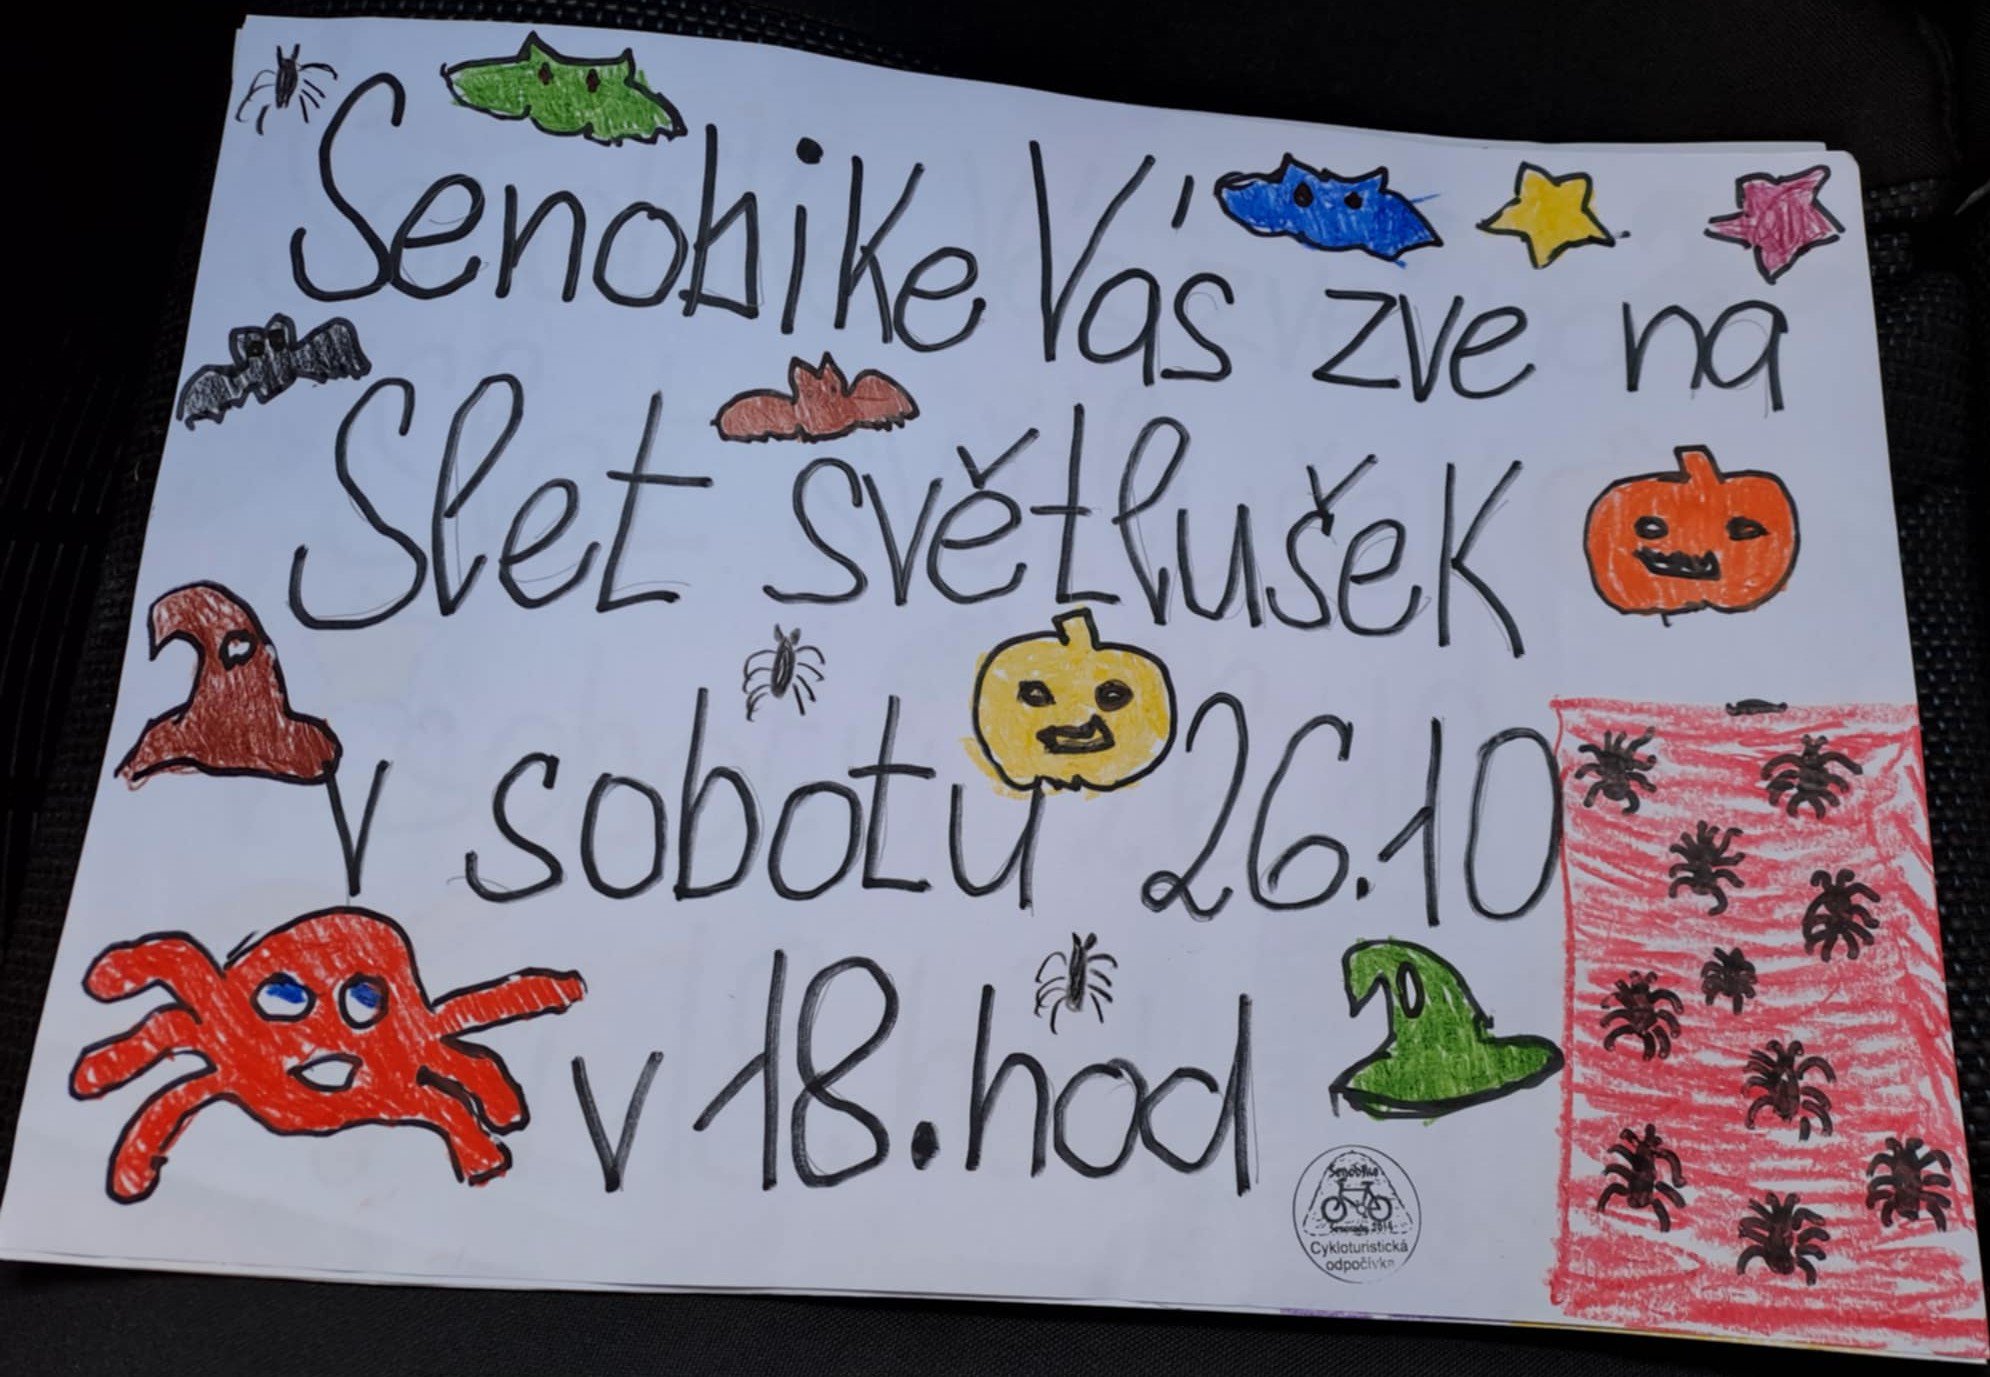 Senobike Vás zve na
Slet světlušek
v sobotu 26.10
v 18.hod
Senobike
Cykloturistická
odpočívka